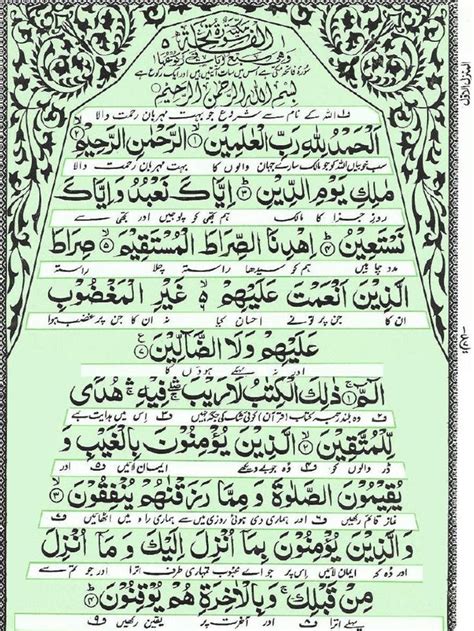 سورة الفاتحة
سورۃ فاتحہ مکی ہے اس میں سات آیتیں ہیں اور ایک رکوع ہے
بسم الله الرحمن الرحيم
اللہ کے نام سے شروع جو بہت مہربان رحمت والا
اَلْحَمْدُ لِلّٰهِ رَبِّ الْعٰلَمِیْنَ ۱ الرَّحْمٰنِ الرَّحِیْمِ ۲
سب خوبیاں اللہ کو جو مالک سارے جہان والوں کا بہت مہربان رحمت والا
مٰلِكِ یَوْمِ الدِّیْنِ ۳ اِیَّاكَ نَعْبُدُ وَ اِیَّاكَ
روز جزا کا مالک ہم تجھی کو پوجیں اور تجھی سے
نَسْتَعِیْنُ ۴ اِهْدِنَا الصِّرَاطَ الْمُسْتَقِیْمَ ۵ صِرَاطَ
مدد چاہیں ہم کو سیدھا راستہ چلا راستہ
الَّذِیْنَ اَنْعَمْتَ عَلَیْهِمْ ۶ غَیْرِ الْمَغْضُوْبِ
ان کا جن پر تو نے احسان کیا نہ ان کا جن پر غضب ہوا
عَلَیْهِمْ وَلَا الضَّآلِّیْنَ ۷
اور نہ بہکے ہوؤں کا
الٓمّٓ ۱ ذٰلِكَ الْكِتٰبُ لَا رَیْبَ فِیْهِ هُدًی
وہ بلند رتبہ کتاب (قرآن) کوئی شک کی جگہ نہیں اس میں ہدایت ہے
لِّلْمُتَّقِیْنَ ۲ الَّذِیْنَ یُؤْمِنُوْنَ بِالْغَیْبِ وَ
ڈر والوں کو وہ جو بے دیکھے ایمان لائیں اور
یُقِیْمُوْنَ الصَّلٰوةَ وَ مِمَّا رَزَقْنٰهُمْ یُنْفِقُوْنَ ۳
نماز قائم رکھیں اور ہماری دی ہوئی روزی میں سے ہماری راہ میں اٹھائیں
وَ الَّذِیْنَ یُؤْمِنُوْنَ بِمَآ اُنْزِلَ اِلَیْكَ وَ مَآ اُنْزِلَ
اور وہ کہ ایمان لائیں اس پر جو اے محبوب تمہاری طرف اترا اور جو تم سے
مِنْ قَبْلِكَ وَ بِالْاٰخِرَةِ هُمْ یُوْقِنُوْنَ ۴
پہلے اترا اور آخرت پر یقین رکھیں